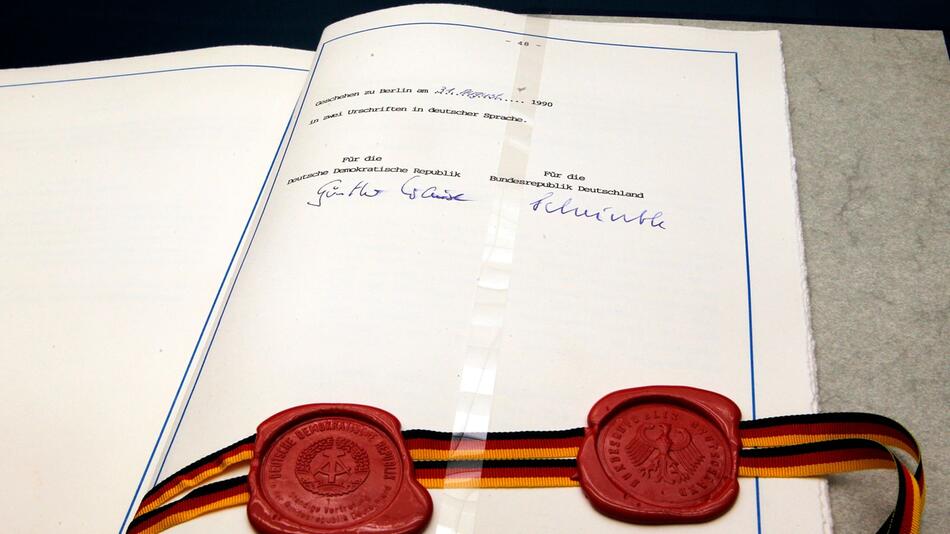 - 48 -
Geschehen zu Berlin am 31. August 1990
in zwei Urschriften in deutscher Sprache.
Für die
Deutsche Demokratische Republik
Für die
Bundesrepublik Deutschland
Günther
DEUTSCHE DEMOKRATISCHE REPUBLIK
BUNDESREPUBLIK DEUTSCHLAND